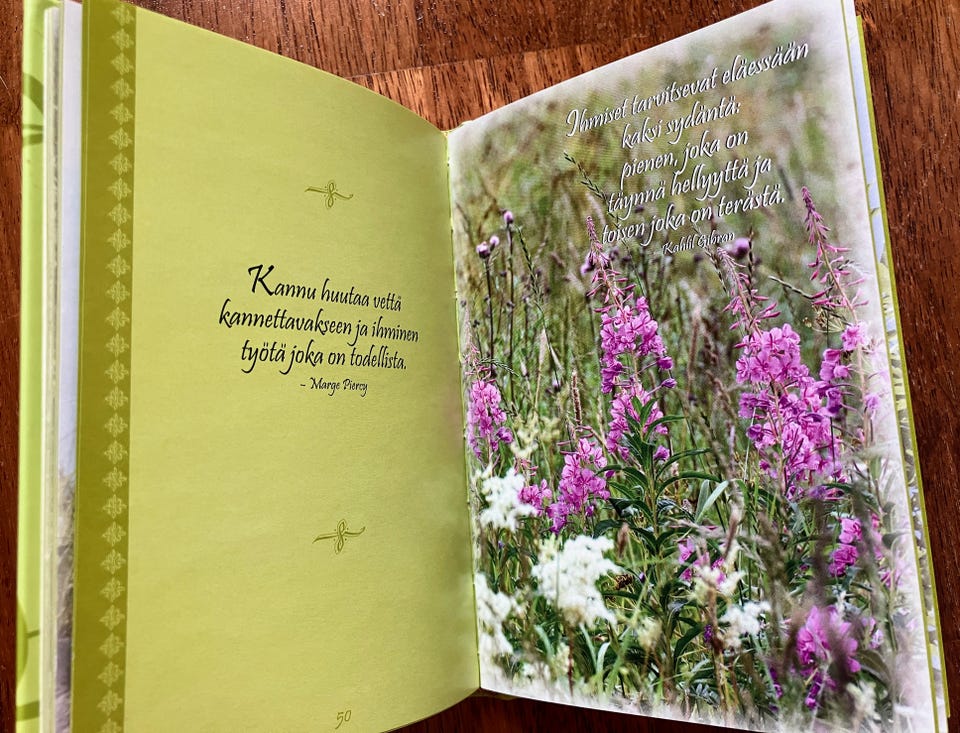 Kannu huutaa vettä
kannettavakseen ja ihminen
työtä joka on todellista.
– Marge Piercy
50
Ihmiset tarvitsevat eläessään
kaksi sydäntä:
pienen, joka on
täynnä hellyyttä ja
toisen joka on terästä.
– Kahlil Gibran